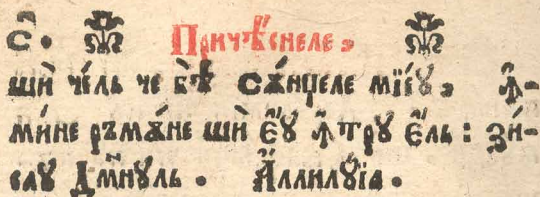 С҃. Причѣснеле,
шѝ че́ль че бѣ̀ сѫ́нџеле мїе́ꙋ, ꙟ҆-
мѝне ръмѫ́не шѝ є҆́ꙋ ꙟ҆тру є҆́ль : зѝ-
са́ꙋ Дмⷩ҇ꙋль . А҆ллилꙋ́їа .